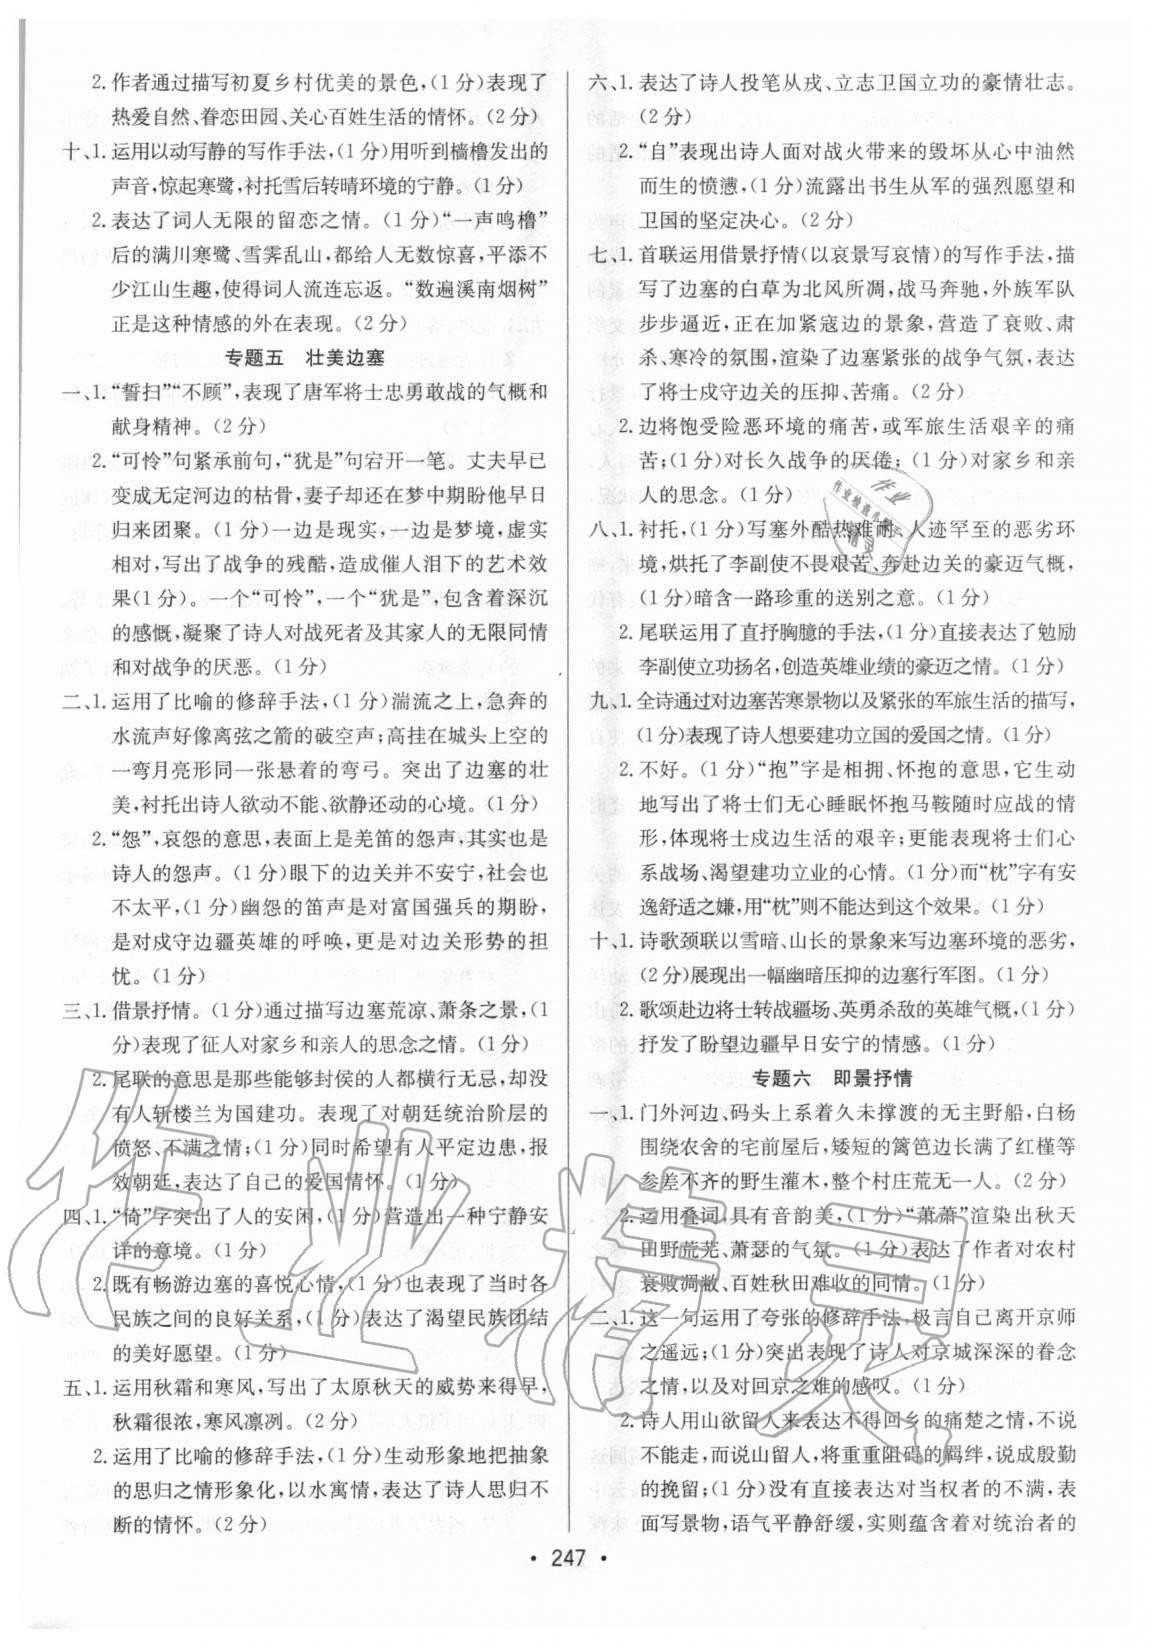 2. 作者通过描写初夏乡村优美的景色,(1分)表现了
热爱自然、眷恋田园、关心百姓生活的情怀。(2分)
十、1. 运用以动写静的写作手法,(1分)用听到樯橹发出的
声音,惊起寒鹭,衬托雪后转晴环境的宁静。(1分)
2. 表达了词人无限的留恋之情。(1分)“一声鸣橹”
后的满川寒鹭、雪霁乱山,都给人无数惊喜,平添不
少江山生趣,使得词人流连忘返。“数遍溪南烟树”
正是这种情感的外在表现。(2分)
专题五 壮美边塞
一、1. “誓扫”“不顾”,表现了唐军将士忠勇敢战的气概和
献身精神。(2分)
2. “可怜”句紧承前句,“犹是”句宕开一笔。丈夫早已
变成无定河边的枯骨,妻子却还在梦中期盼他早日
归来团聚。(1分)一边是现实,一边是梦境,虚实
相对,写出了战争的残酷,造成催人泪下的艺术效
果(1分)。一个“可怜”,一个“犹是”,包含着深沉
的感慨,凝聚了诗人对战死者及其家人的无限同情
和对战争的厌恶。(1分)
二、1. 运用了比喻的修辞手法,(1分)湍流之上,急奔的
水流声好像离弦之箭的破空声;高挂在城头上空的
一弯月亮形同一张悬着的弯弓。突出了边塞的壮
美,衬托出诗人欲动不能、欲静还动的心境。(1分)
2. “怨”,哀怨的意思,表面上是羌笛的怨声,其实也是
诗人的怨声。(1分)眼下的边关并不安宁,社会也
不太平,(1分)幽怨的笛声是对富国强兵的期盼,
是对戍守边疆英雄的呼唤,更是对边关形势的担
忧。(1分)
三、1. 借景抒情。(1分)通过描写边塞荒凉、萧条之景,(1
分)表现了征人对家乡和亲人的思念之情。(1分)
2. 尾联的意思是那些能够封侯的人都横行无忌,却没
有人斩楼兰为国建功。表现了对朝廷统治阶层的
愤怒、不满之情;(1分)同时希望有人平定边患,报
效朝廷,表达了自己的爱国情怀。(1分)
四、1. “倚”字突出了人的安闲,(1分)营造出一种宁静安
详的意境。(1分)
2. 既有畅游边塞的喜悦心情,(1分)也表现了当时各
民族之间的良好关系,(1分)表达了渴望民族团结
的美好愿望。(1分)
五、1. 运用秋霜和寒风,写出了太原秋天的威势来得早,
秋霜很浓,寒风凛冽。(2分)
2. 运用了比喻的修辞手法,(1分)生动形象地把抽象
的思归之情形象化,以水寓情,表达了诗人思归不
断的情怀。(2分)
六、1. 表达了诗人投笔从戎、立志卫国立功的豪情壮志。
(2分)
2. “自”表现出诗人面对战火带来的毁坏从心中油然
而生的愤懑,(1分)流露出书生从军的强烈愿望和
卫国的坚定决心。(2分)
七、1. 首联运用借景抒情(以哀景写哀情)的写作手法,描
写了边塞的白草为北风所凋,战马奔驰,外族军队
步步逼近,正在加紧寇边的景象,营造了衰败、肃
杀、寒冷的氛围,渲染了边塞紧张的战争气氛,表达
了将士戍守边关的压抑、苦痛。(2分)
2. 边将饱受险恶环境的痛苦,或军旅生活艰辛的痛
苦;(1分)对长久战争的厌倦;(1分)对家乡和亲
人的思念。(1分)
八、1. 衬托,(1分)写塞外酷热难耐、人迹罕至的恶劣环
境,烘托了李副使不畏艰苦、奔赴边关的豪迈气概,
(1分)暗含一路珍重的送别之意。(1分)
2. 尾联运用了直抒胸臆的手法,(1分)直接表达了勉励
李副使立功扬名,创造英雄业绩的豪迈之情。(1分)
九、1. 全诗通过对边塞苦寒景物以及紧张的军旅生活的描写,
(1分)表现了诗人想要建功立国的爱国之情。(1分)
2. 不好。(1分)“抱”字是相拥、怀抱的意思,它生动
地写出了将士们无心睡眠怀抱马鞍随时应战的情
形,体现将士戍边生活的艰辛;更能表现将士们心
系战场、渴望建功立业的心情。(1分)而“枕”字有安
逸舒适之嫌,用“枕”则不能达到这个效果。(1分)
十、1. 诗歌颈联以雪暗、山长的景象来写边塞环境的恶劣,
(2分)展现出一幅幽暗压抑的边塞行军图。(1分)
2. 歌颂赴边将士转战疆场、英勇杀敌的英雄气概,(1分)
抒发了盼望边疆早日安宁的情感。(1分)
专题六 即景抒情
一、1. 门外河边、码头上系着久未撑渡的无主野船,白杨
围绕农舍的宅前屋后,矮短的篱笆边长满了红槿等
参差不齐的野生灌木,整个村庄荒无一人。(2分)
2. 运用叠词,具有音韵美,(1分)“萧萧”渲染出秋天
田野荒芜、萧瑟的气氛。(1分)表达了作者对农村
衰败凋敝、百姓秋田难收的同情。(1分)
二、1. 这一句运用了夸张的修辞手法,极言自己离开京师
之遥远;(1分)突出表现了诗人对京城深深的眷念
之情,以及对回京之难的感叹。(1分)
2. 诗人用山欲留人来表达不得回乡的痛楚之情,不说
不能走,而说山留人,将重重阻碍的羁绊,说成殷勤
的挽留;(1分)没有直接表达对当权者的不满,表
面写景物,语气平静舒缓,实则蕴含着对统治者的
• 247 •
作业
作业检查小助手
精灵
作业精灵